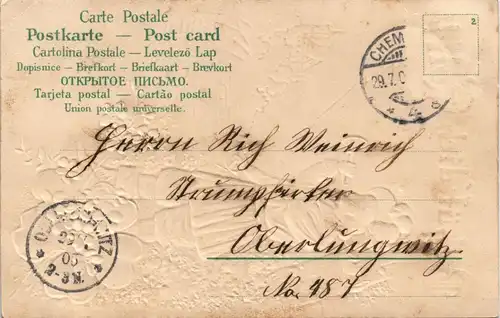 Carte Postale
Postkarte — Post card
Cartolina Postale — Levelező Lap
Dopisnice — Brefkort — Briefkaart — Brevkort
ОТКРЫТОЕ ПИСЬМО.
Tarjeta postal — Cartão postal
Union postale universelle.
2
CHEM
29.7.0
Herrn Rich Weinrich
Oberlungwitz
No. 487
05